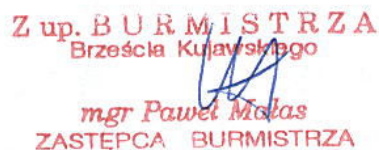 Z up. BURMISTRZA
Brześcia Kujawskiego
mgr Paweł Malas
ZASTĘPCA BURMISTRZA